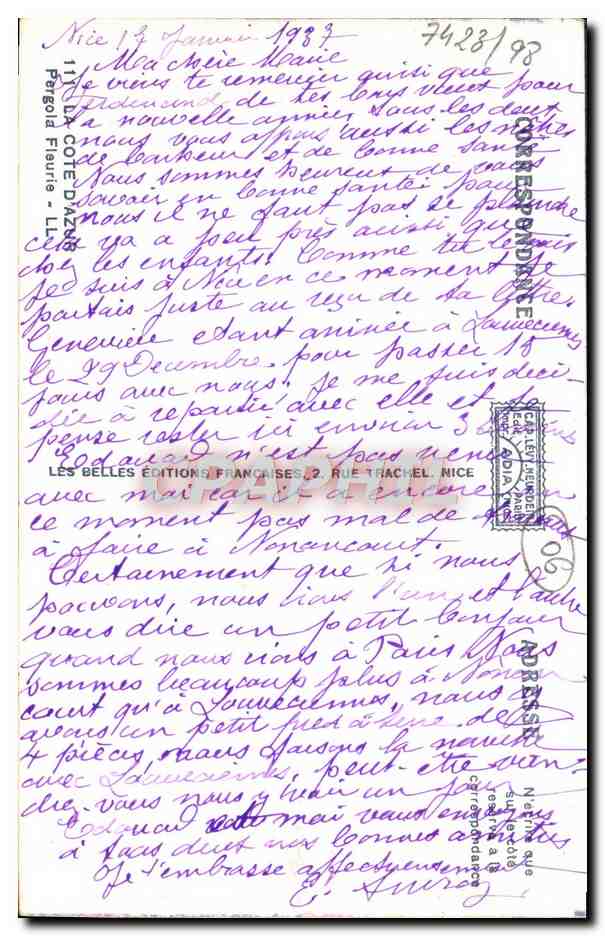 Nice 13 Janvier 1937
7423/98
Ma chère Marie
Je viens te remercier ainsi que
Ferdinand de tes bons vœux pour
la nouvelle année, tous les deux
nous vous offrons aussi les nôtres
de bonheur et de bonne santé
Nous sommes heureux de vous
savoir en bonne santé, pour
nous il ne faut pas se plaindre
cela va à peu près ainsi que
chez les enfants. Comme tu le vois
je suis à Nice en ce moment je
partais juste au reçu de ta lettre.
Geneviève étant arrivée à Louveciennes
le 29 Décembre pour passer 15
jours avec nous, je me suis déci-
dée à repartir avec elle et je
pense rester ici environ 3
Edouard n'est pas venu
avec moi car il a encore en
ce moment pas mal de
à faire à Nonancourt.
Certainement que si nous
pouvons, nous irons l'un et l'autre
vous dire un petit bonjour
quand nous irons à Paris. Nous
sommes beaucoup plus à Nonan
court qu'à Louveciennes, nous y
avons un petit pied à terre de
4 pièces, nous faisons la navette
avec Louveciennes, peut-être vien-
drez-vous nous y voir un jour
Edouard et moi vous envoyons
à tous deux nos bonnes amitiés
Je t'embrasse affectueusement
E.
111 LA COTE D'AZUR
Pergola Fleurie - LL.
CORRESPONDANCE
ADRESSE
N'écrire que
sur le côté
réservé à la
correspondance
LES BELLES ÉDITIONS FRANÇAISES, 2, RUE TRACHEL, NICE
CAP. LÉVY & NEURDEIN
PARIS
06
CPAPHIL